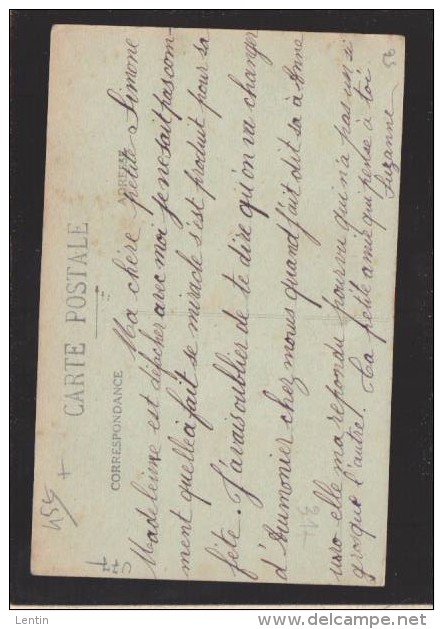 CARTE POSTALE
CORRESPONDANCE
ADRESSE
Ma chère petite Simone
Madeleine est défacher avec moi je ne sait pas com-
ment quelle a fait se miracle s'est produit pour sa
fête. J'avais oublier de te dire qu'on va changer
d'Aumonier chez mous quand j'ait dit sa à Anne
elle ma repondu pourvu qui n'a pas un si
gros que l'autre! Ta petite amie qui pense à toi
Suzanne
455
© Lentin
www.delcampe.net